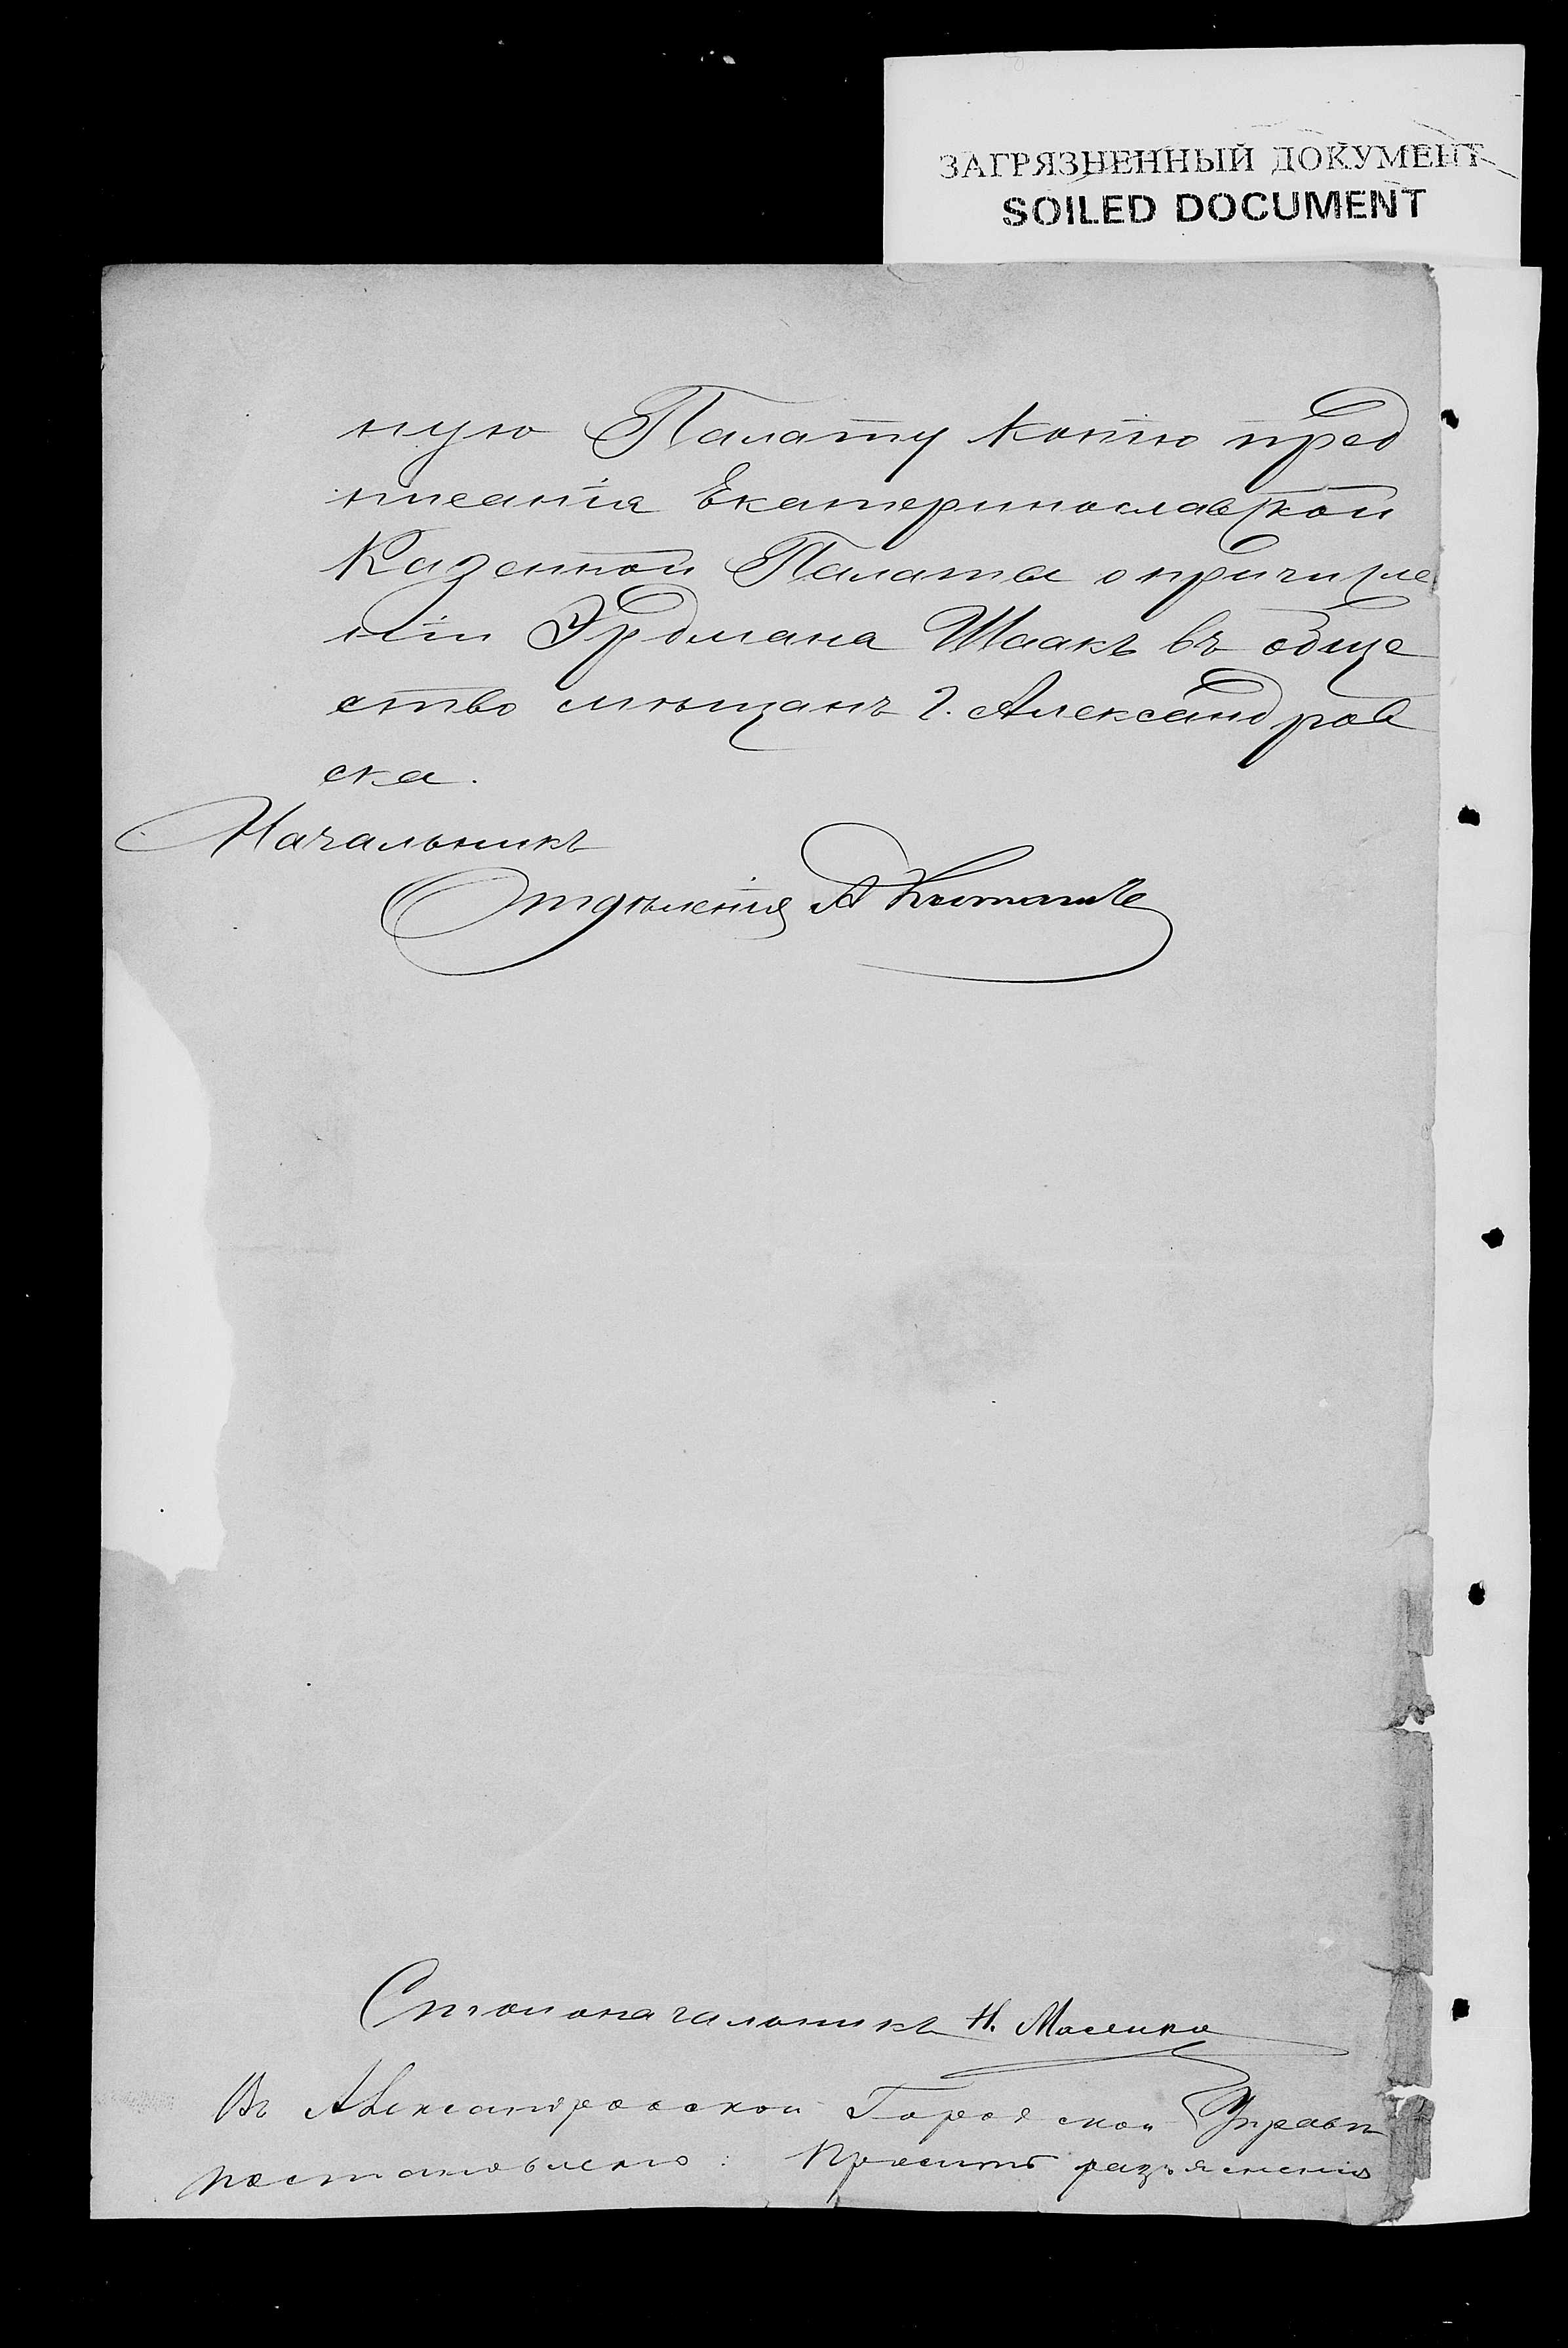 ЗАГРЯЗНЕННЫЙ ДОКУМЕНТ
SOILED DOCUMENT
ную Палату копію пред
писанія Екатеринославской
Казенной Палаты о причисле
ніи Эрдмана Шаакъ въ обще
ство мѣщанъ г. Александров
ска.
Начальникъ
Отдѣленія А
Столоначальникъ Н.
Въ Александровской Городской Управѣ
постановлено: Просить разъясненія